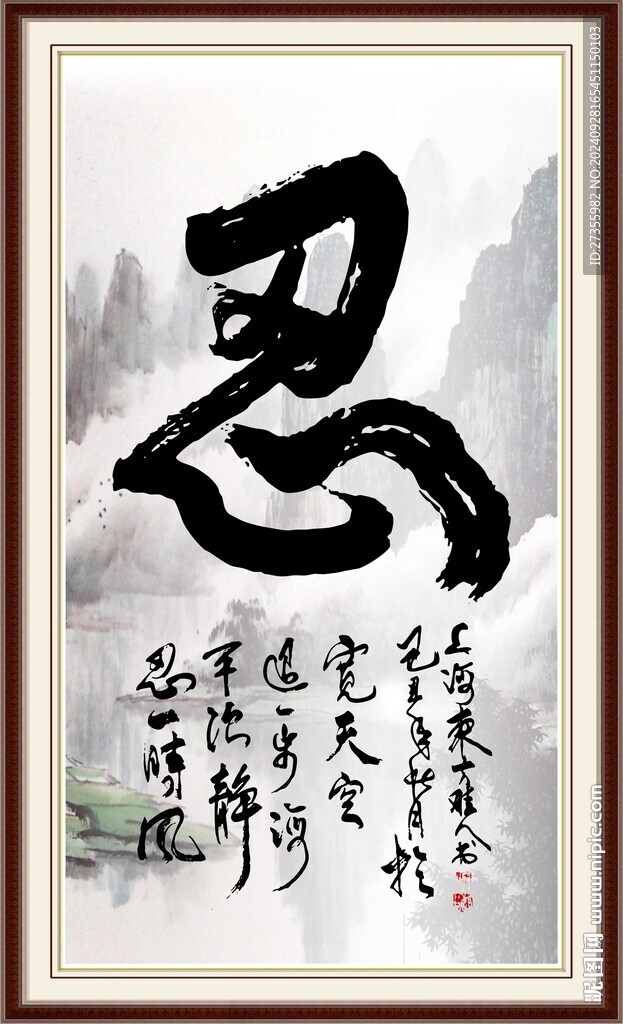 忍
忍一時風
平浪静
退一步海
寬天空
己丑年秋月於
上海東方
ID:27355982 NO:20240928165451150103
昵图网 www.nipic.com